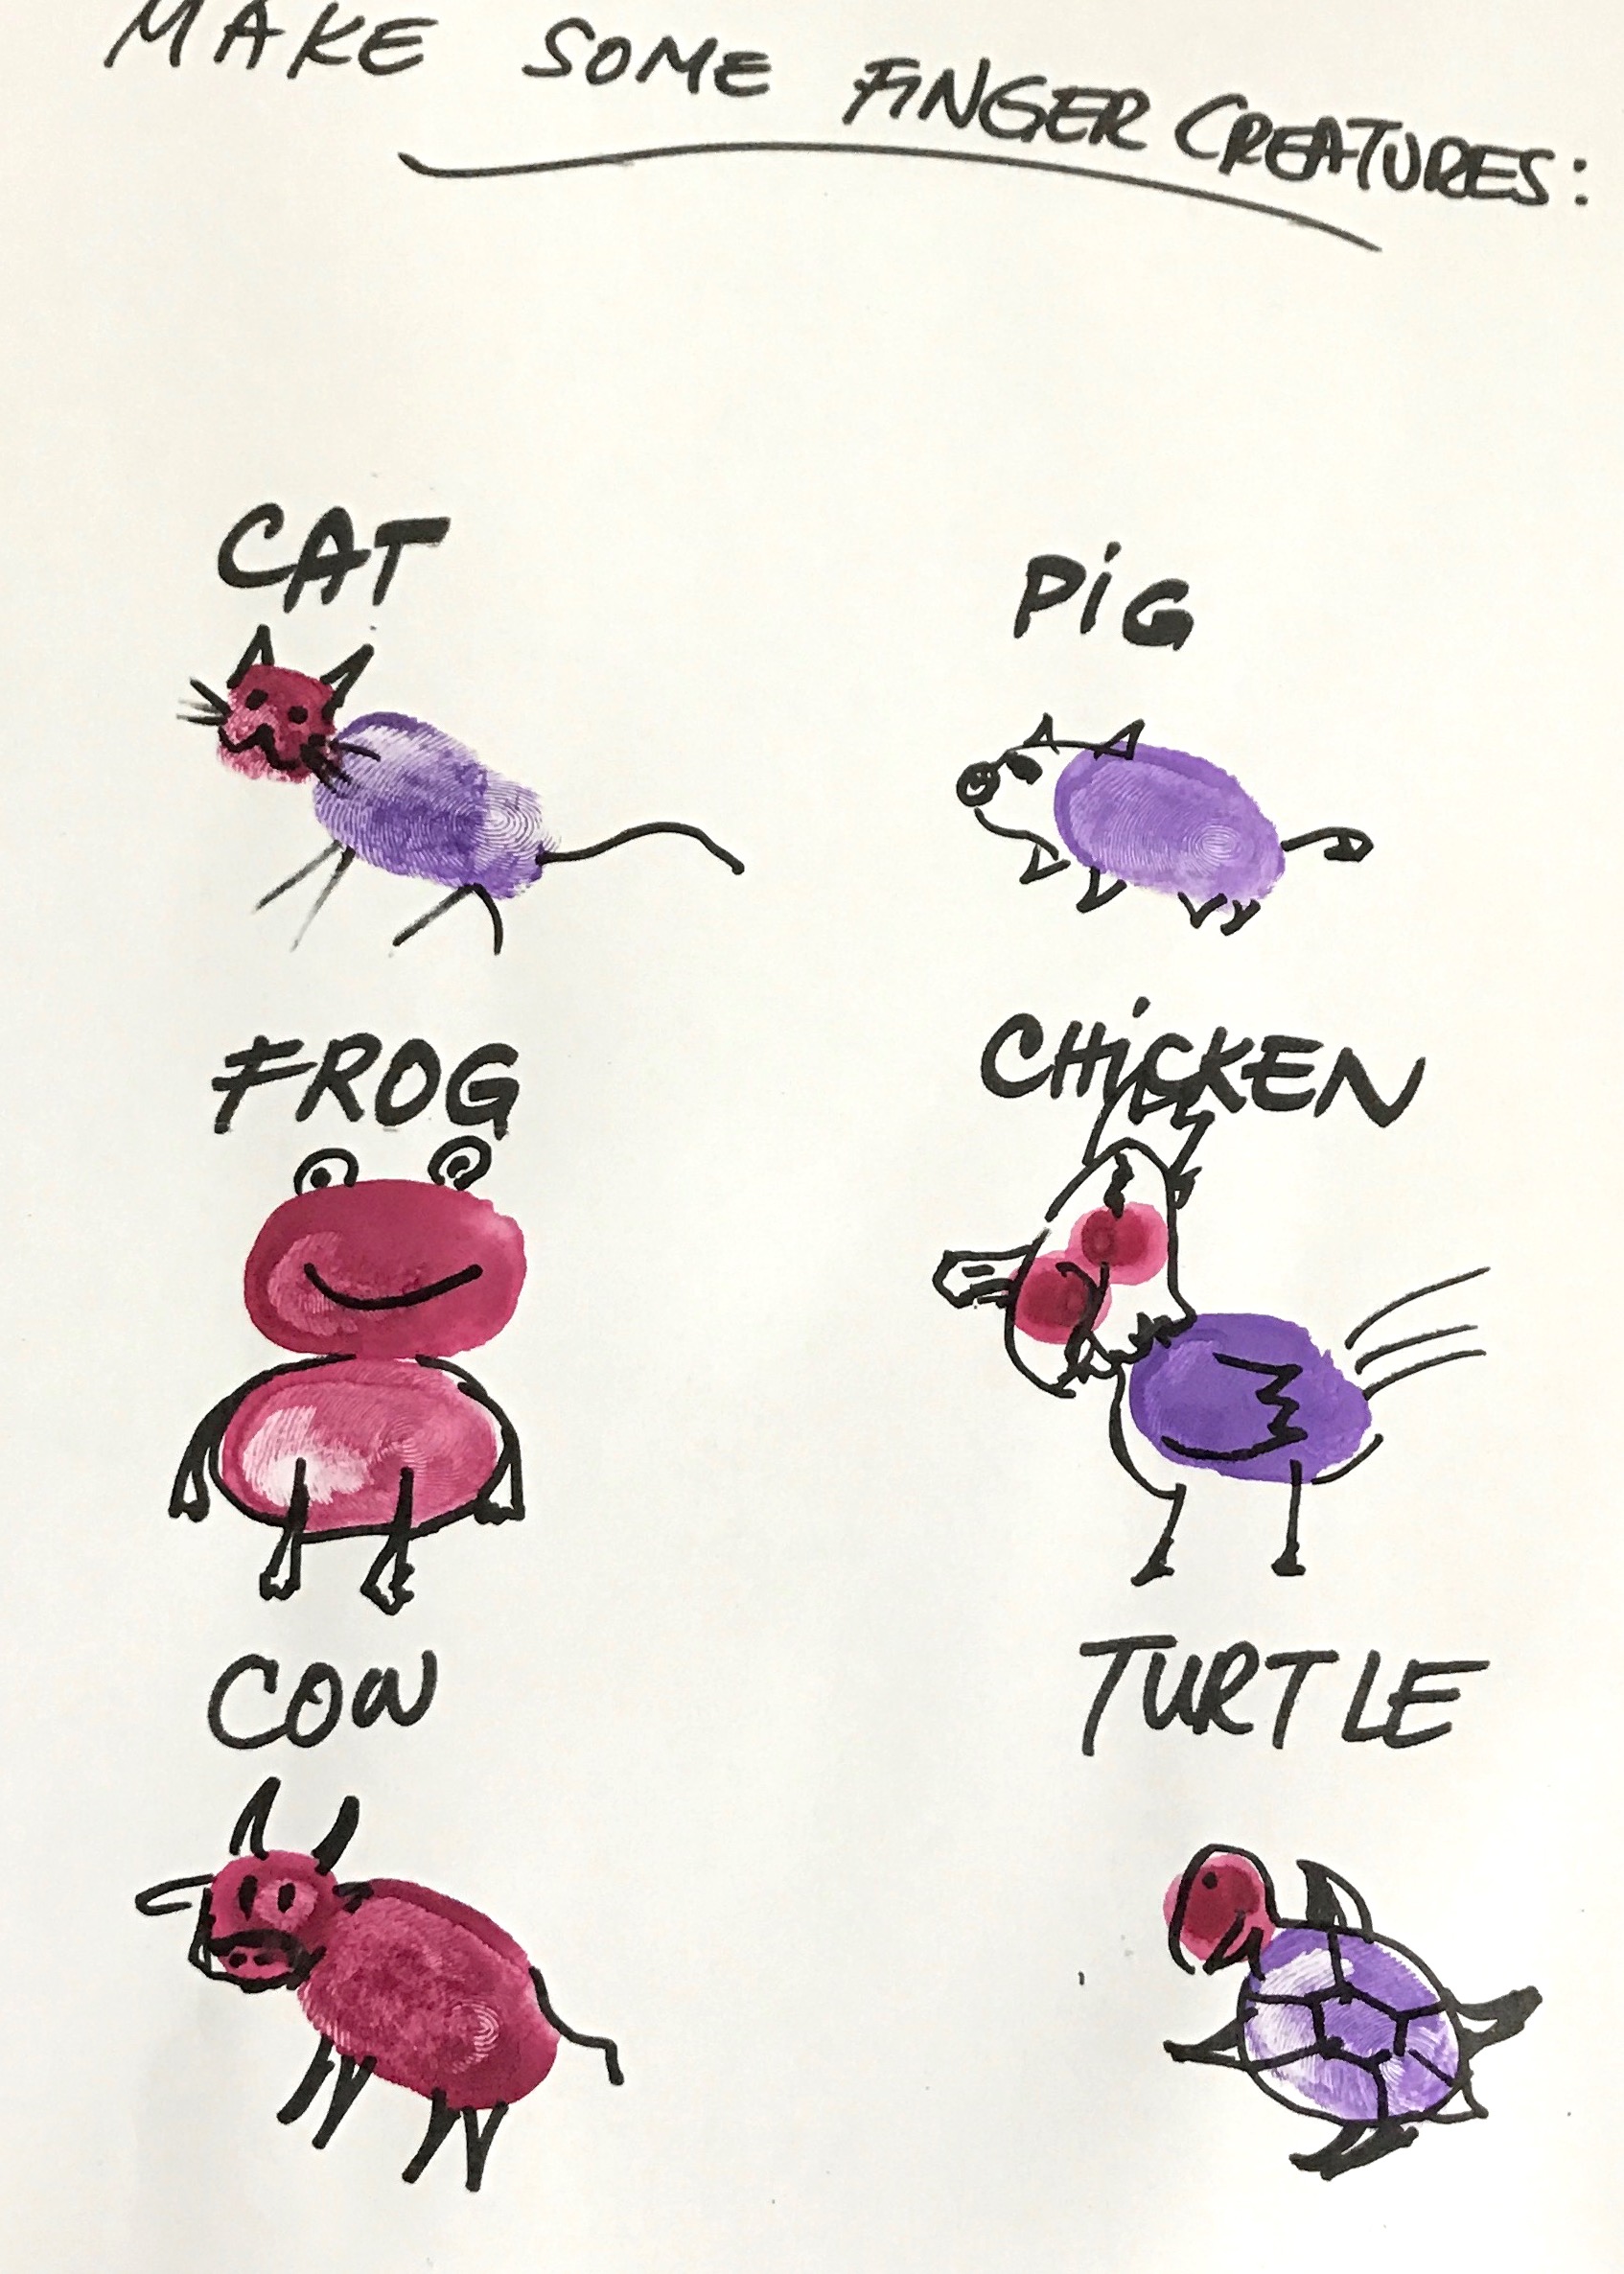 MAKE SOME FINGER CREATURES:
CAT
PiG
FROG
CHiCKEN
COW
TURTLE